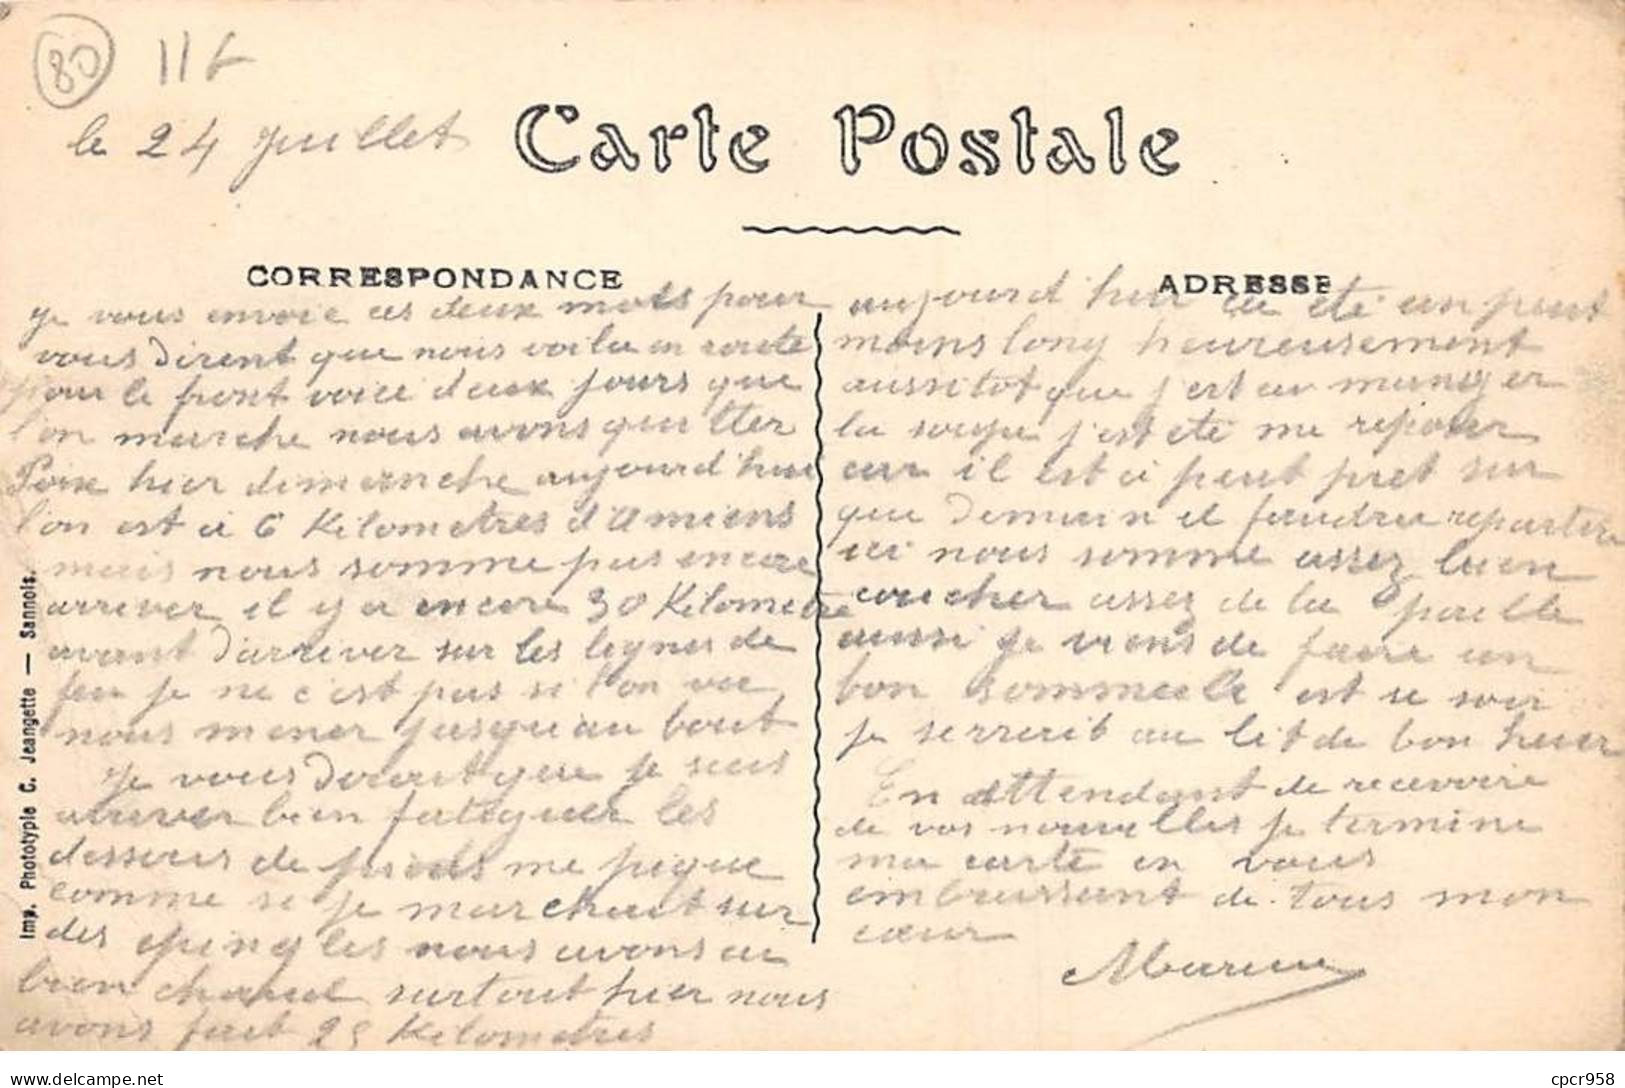 80
11f
le 24 juillet
Carte Postale
CORRESPONDANCE
je vous envoie ces deux mots pour
vous dirent que nous voila en route
pour le front voice deux jours que
l'on marche nous avons quitter
Poix hier dimanche aujourd'hui
l'on est à 6 Kilometres d'Amiens
mais nous somme pas encore
arriver il y a encore 30 Kilometre
avant d'arriver sur les lignes de
feu je ne c'est pas si l'on vas
nous mener jusqu'au bout
Je vous dirait que je suis
arriver bien fatiguer les
dessous de pieds me pique
comme si je marchait sur
des epingles nous avons eu
bien chaud surtout hier nous
avons fait 25 Kilometres
ADRESSE
aujourd'hui ça été un peut
moins long heureusement
aussitot que j'est eu manger
la soupe j'est été me reposer
car il est à peut pret sur
que demain il faudra repartir
ici nous somme assez bien
coucher assez de la paille
aussi je viens de faire un
bon somme et se soir
je serrait au lit de bon heure
En attendant de recevoire
de vos nouvelles je termine
ma carte en vous
embrassant de tous mon
cœur
Imp. Phototypie C. Jeangette — Sannois.
delcampe.net
cpcr958